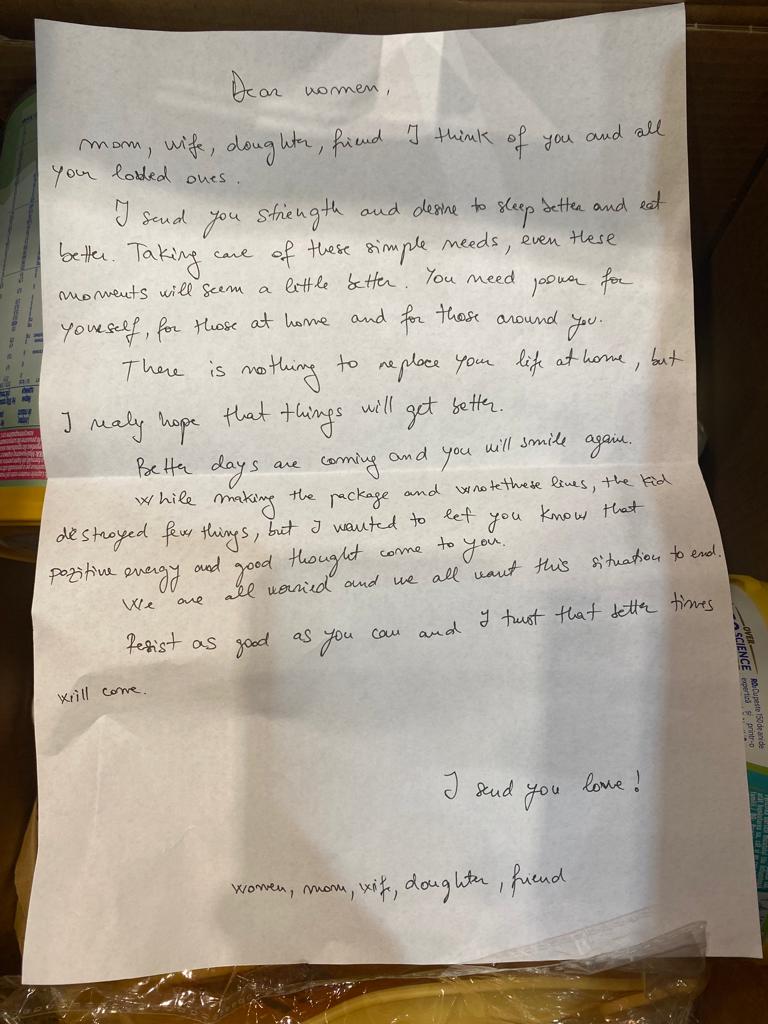 Dear women,
mom, wife, doughter, friend I think of you and all
your loved ones.
I send you strength and desire to sleep better and eat
better. Taking care of these simple needs, even these
moments will seem a little better. You need power for
yourself, for those at home and for those around you.
There is nothing to replace your life at home, but
I realy hope that things will get better.
Better days are coming and you will smile again.
While making the package and wrote these lines, the kid
destroyed few things, but I wanted to let you know that
pozitive energy and good thought come to you.
We are all worried and we all want this situation to end.
Resist as good as you can and I trust that better times
will come.
I send you love!
women, mom, wife, doughter, friend
OVER
SCIENCE
RO: Cu peste 150 de ani de
expertiză și printr-o